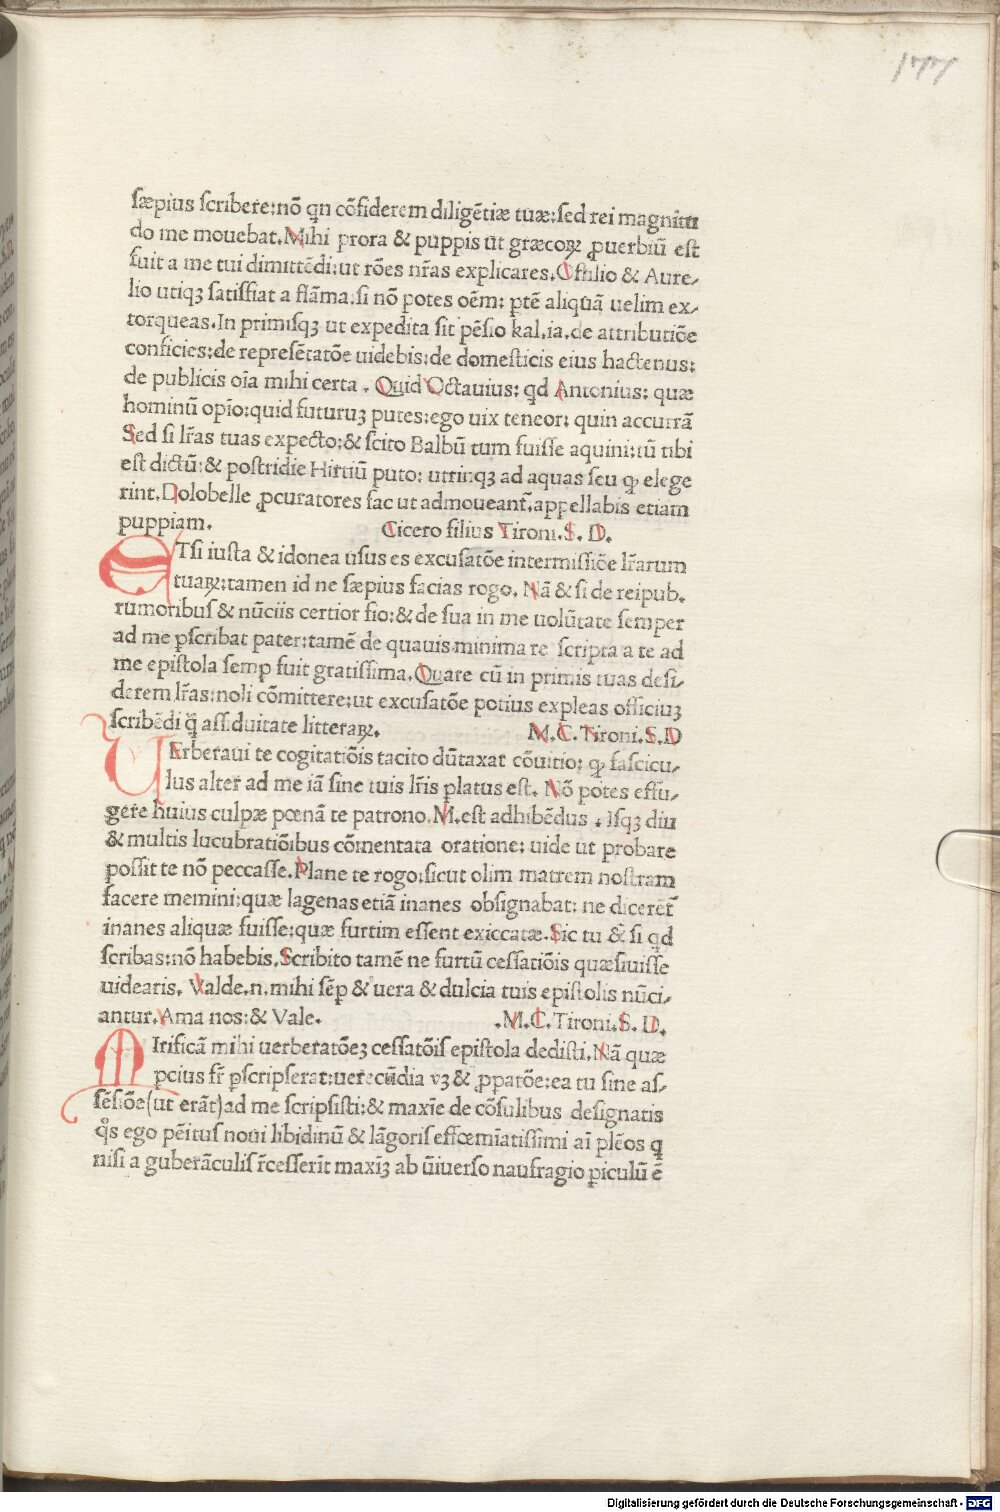 177
sæpius scribere: nõ qn cõfiderem diligẽtiæ tuæ: sed rei magnitu
do me mouebat. Mihi prora & puppis ut græcoꝝ ꝓuerbiũ est
fuit a me tui dimittẽdi: ut rões nr̃as explicares. Offilio & Aure⸗
lio utiqꝫ satisfiat a flãma. si nõ potes oẽm: ptẽ aliquã uelim ex⸗
torqueas. In primisqꝫ ut expedita sit pẽsio kal. ia. de attributiõe
conficies: de represẽtatõe uidebis: de domesticis eius hactenus:
de publicis oĩa mihi certa . Quid Octauius: qd Antonius: quæ
hominũ opĩo: quid futuruꝫ putes: ego uix teneor: quin accurrã
Sed si lr̃as tuas expecto: & scito Balbũ tum fuisse aquini: tũ tibi
est dictũ: & postridie Hirtiũ puto: utrinqꝫ ad aquas seu ꝙ elege
rint. Dolobelle ꝓcuratores fac ut admoueant̃. appellabis etiam
puppiam. Cicero filius Tironi. S. D.
ETsi iusta & idonea usus es excusatõe intermissiõe lr̃arum
tuaꝝ: tamen id ne sæpius facias rogo. Nã & si de reipub.
rumoribus & nũciis certior fio: & de sua in me uolũtate semper
ad me ꝑscribat pater: tamẽ de quauis minima re scripta a te ad
me epistola semp fuit gratissima. Quare cũ in primis tuas desi⸗
derem lr̃as: noli cõmittere: ut excusatõe potius expleas officiuꝫ
scribẽdi q̃ assiduitate litteraꝝ. M. C. Tironi. S. D
UErberaui te cogitatiõis tacito dũtaxat cõuitio: ꝙ fascicu⸗
lus alter ad me iã sine tuis lr̃is ꝑlatus est. Nõ potes effu⸗
gere huius culpæ pœnã te patrono. M. est adhibẽdus . Isqꝫ diu
& multis lucubratiõibus cõmentata oratione: uide ut probare
possit te nõ peccasse. Plane te rogo: sicut olim matrem nostram
facere memini: quæ lagenas etiã inanes obsignabat: ne dicerẽt
inanes aliquæ fuisse: quæ furtim essent exiccatæ. Sic tu & si qd
scribas: nõ habebis. Scribito tamẽ ne furtũ cessatiõis quæsiuisse
uidearis. Valde. n. mihi sẽp & uera & dulcia tuis epistolis nũci⸗
antur. Ama nos: & Vale. .M. C. Tironi. S. D.
MIrificã mihi uerberatõeꝫ cessatõis epistola dedisti. Nã quæ
pcius fr̃ ꝑscripserat: uerecũdia vꝫ & ꝓpatõe: ea tu sine as⸗
sẽsiõe (ut erãt) ad me scripsisti: & maxĩe de cõsulibus designatis
q̊s ego pẽitus noui libidinũ & lãgoris effœmĩatissimi aĩ plẽos q
nisi a guberãculis r̃cesserĩt maxĩꝫ ab ũiuerso naufragio ꝑiculũ ẽ
Digitalisierung gefördert durch die Deutsche Forschungsgemeinschaft - DFG